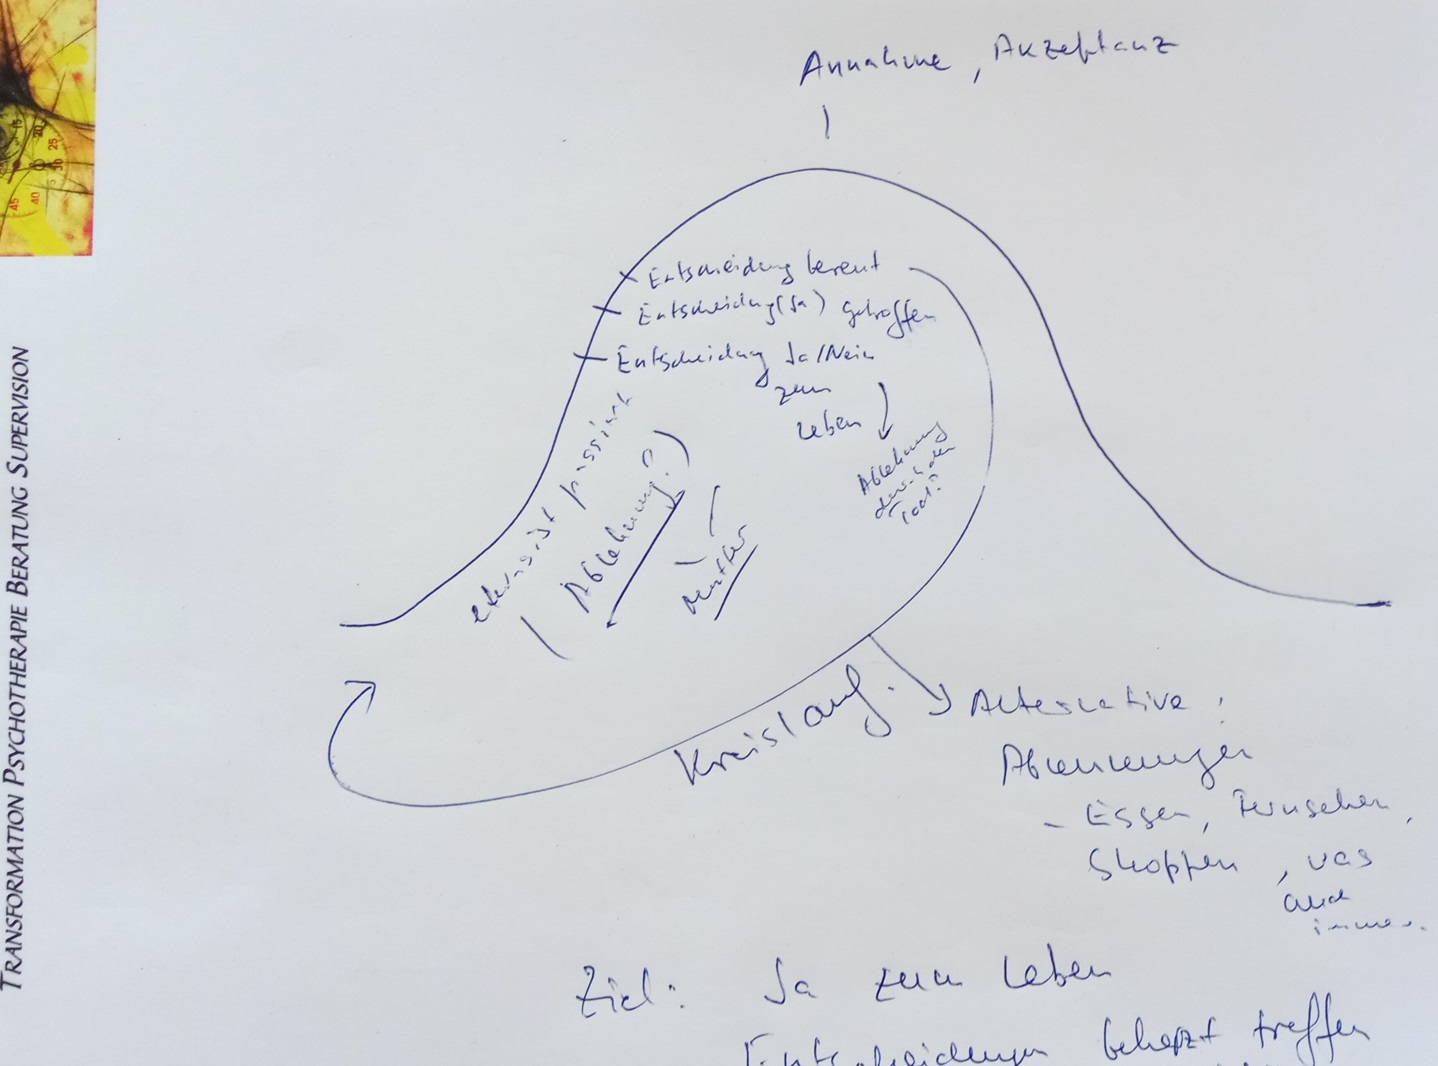 Annahme, Akzeptanz
Entscheidung bereut
Entscheidung (Ja) getroffen
Entscheidung Ja/Nein
zum
Leben
Ablehnung
durch den
Tod?
etwas ist passiert
(Ablehnung?)
Mutter
Kreislauf.
Alternative:
Ablenkungen
- Essen, Fernsehen,
Shoppen, was
auch
immer.
Ziel: Ja zum Leben
Entscheidungen beherzt treffen
TRANSFORMATION PSYCHOTHERAPIE BERATUNG SUPERVISION
15
20
25
30
40
45